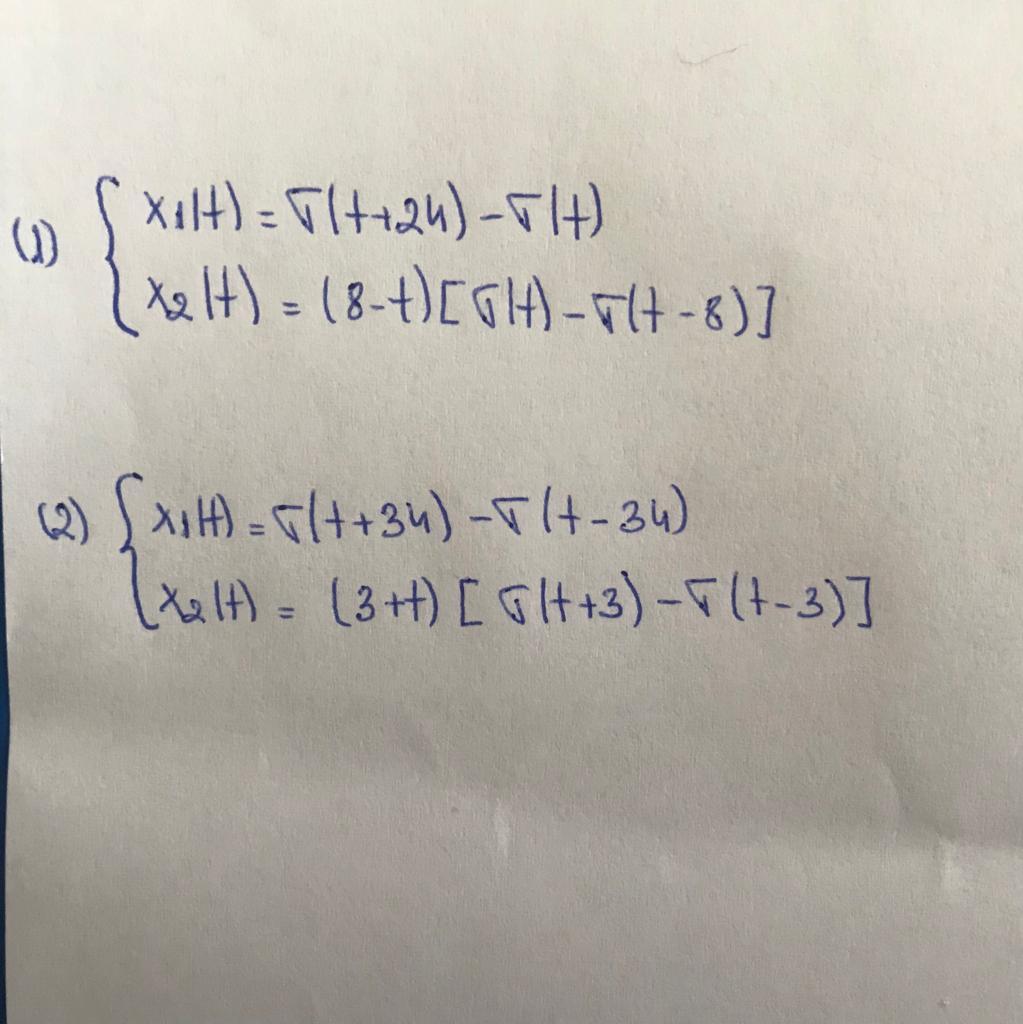 (1) { x₁(t) = σ(t+24) - σ(t)
x₂(t) = (8-t)[σ(t) - σ(t-8)]
(2) { x₁(t) = σ(t+34) - σ(t-34)
x₂(t) = (3+t)[σ(t+3) - σ(t-3)]